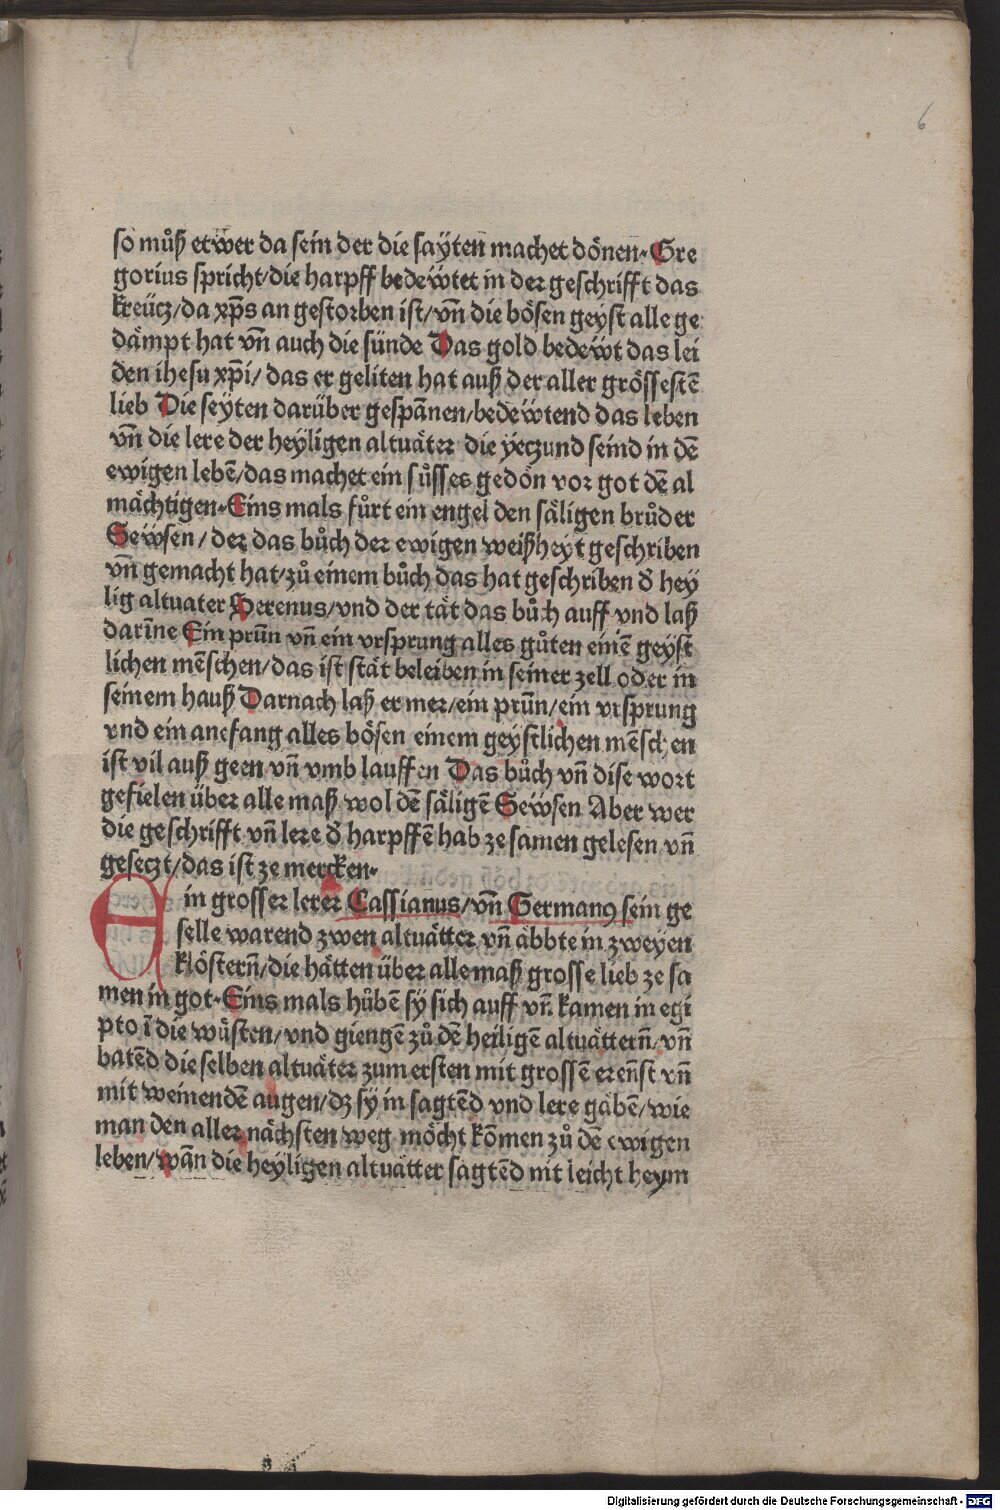 6
so můß etwer da sein der die saÿten machet dönen. Gre
gorius spricht/die harpff bedeẅtet in der geschrifft das
kreütz/da xp̄s an gestorben ist/vn̄ die bösen geyst alle ge
dämpt hat vn̄ auch die sünde Das gold bedeẅt das lei
den ihesu xp̄i/das er geliten hat auß der aller grössestē
lieb Die seÿten darüber gespān̄en/bedeẅtend das leben
vn̄ die lere der heÿligen altuäter die ÿetzund seind in dē
ewigen lebē/das machet ein sůsses gedön vor got dē al
mächtigen. Eins mals fůrt ein engel den säligen brůder
Seẅsen/der das bůch der ewigen weißheyt geschriben
vn̄ gemacht hat/zů einem bůch das hat geschriben d̄ hey
lig altuater Serenus/vnd der tät das bůch auff vnd laß
darīne Ein prūn vn̄ ein vrsprung alles gůten einē geyst
lichen mēschen/das ist stät beleiben in seiner zell oder in
seinem hauß Darnach laß er mer/ein prūn/ein vrsprung
vnd ein anefang alles bösen einem geÿstlichen mēschen
ist vil auß geen vn̄ vmb lauffen Das bůch vn̄ dise wort
gefielen über alle maß wol dē säligē Seẅsen Aber wer
die geschrifft vn̄ lere d̄ harpffē hab ze samen gelesen vn̄
gesetzt/das ist ze mercken.
Ein grosser lerer Cassianus/vn̄ Germanꝰ sein ge
selle warend zwen altuätter vn̄ äbbte in zweyen
klösterñ/die hätten über alle maß grosse lieb ze sa
men in got. Eins mals hůbē sÿ sich auff vn̄ kamen in egi
pto ī die wůsten/vnd giengē zů dē heiligē altuätterñ/vn̄
batēd die selben altuäter zum ersten mit grossē ereñst vn̄
mit weinendē augen/dz sÿ in sagtēd vnd lere gäbē/wie
man den aller nächsten weg möcht kōmen zů dē ewigen
leben/wān die heÿligen altuätter sagtēd nit leicht heym
Digitalisierung gefördert durch die Deutsche Forschungsgemeinschaft - DFG